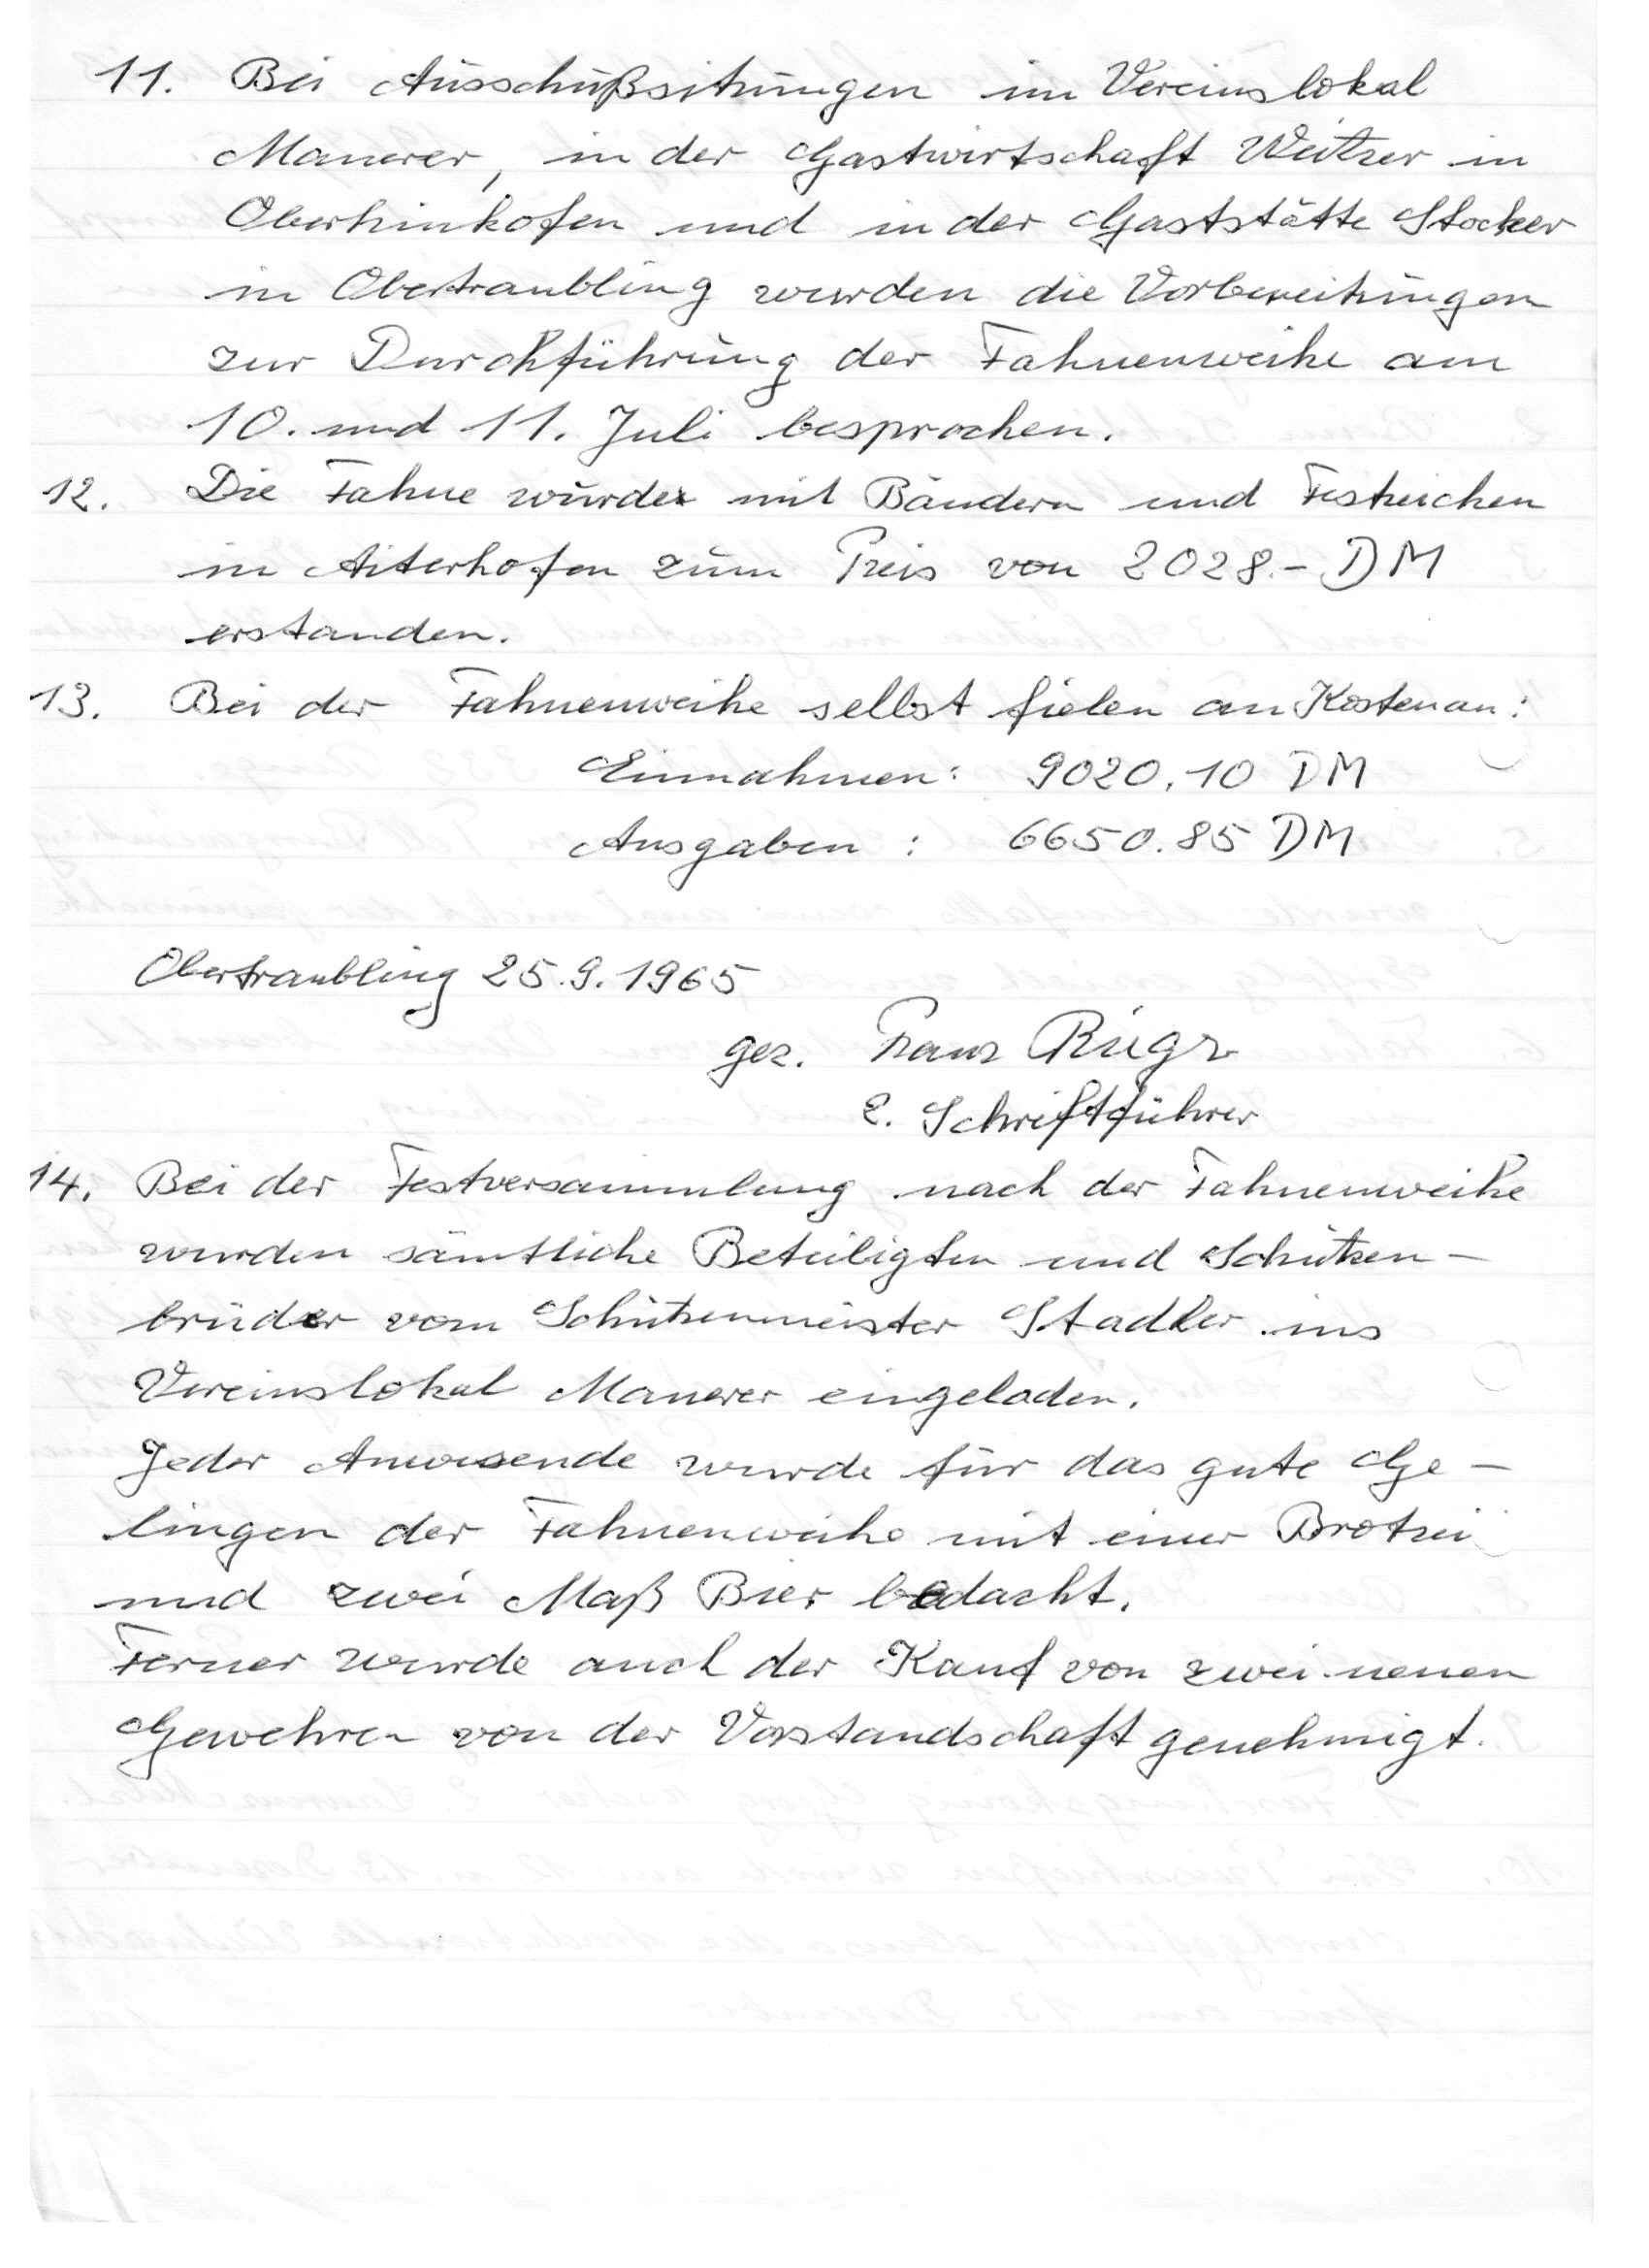 11. Bei Ausschußsitzungen im Vereinslokal
Manerer, in der Gastwirtschaft Weitzer in
Oberhinkofen und in der Gaststätte Stocker
in Obertraubling wurden die Vorbereitungen
zur Durchführung der Fahnenweihe am
10. und 11. Juli besprochen.
12. Die Fahne wurde mit Bändern und Festzeichen
in Aiterhofen zum Preis von 2028.- DM
erstanden.
13. Bei der Fahnenweihe selbst fielen an Kosten an:
Einnahmen: 9020.10 DM
Ausgaben : 6650.85 DM
Obertraubling 25.9.1965
gez. Franz
2. Schriftführer
14. Bei der Festversammlung nach der Fahnenweihe
wurden sämtliche Beteiligten und Schützen-
brüder vom Schützenmeister Stadler ins
Vereinslokal Manerer eingeladen.
Jeder Anwesende wurde für das gute Ge-
lingen der Fahnenweihe mit einer Brotzei
und zwei Maß Bier bedacht.
Ferner wurde auch der Kauf von zwei neuen
Gewehren von der Vorstandschaft genehmigt.